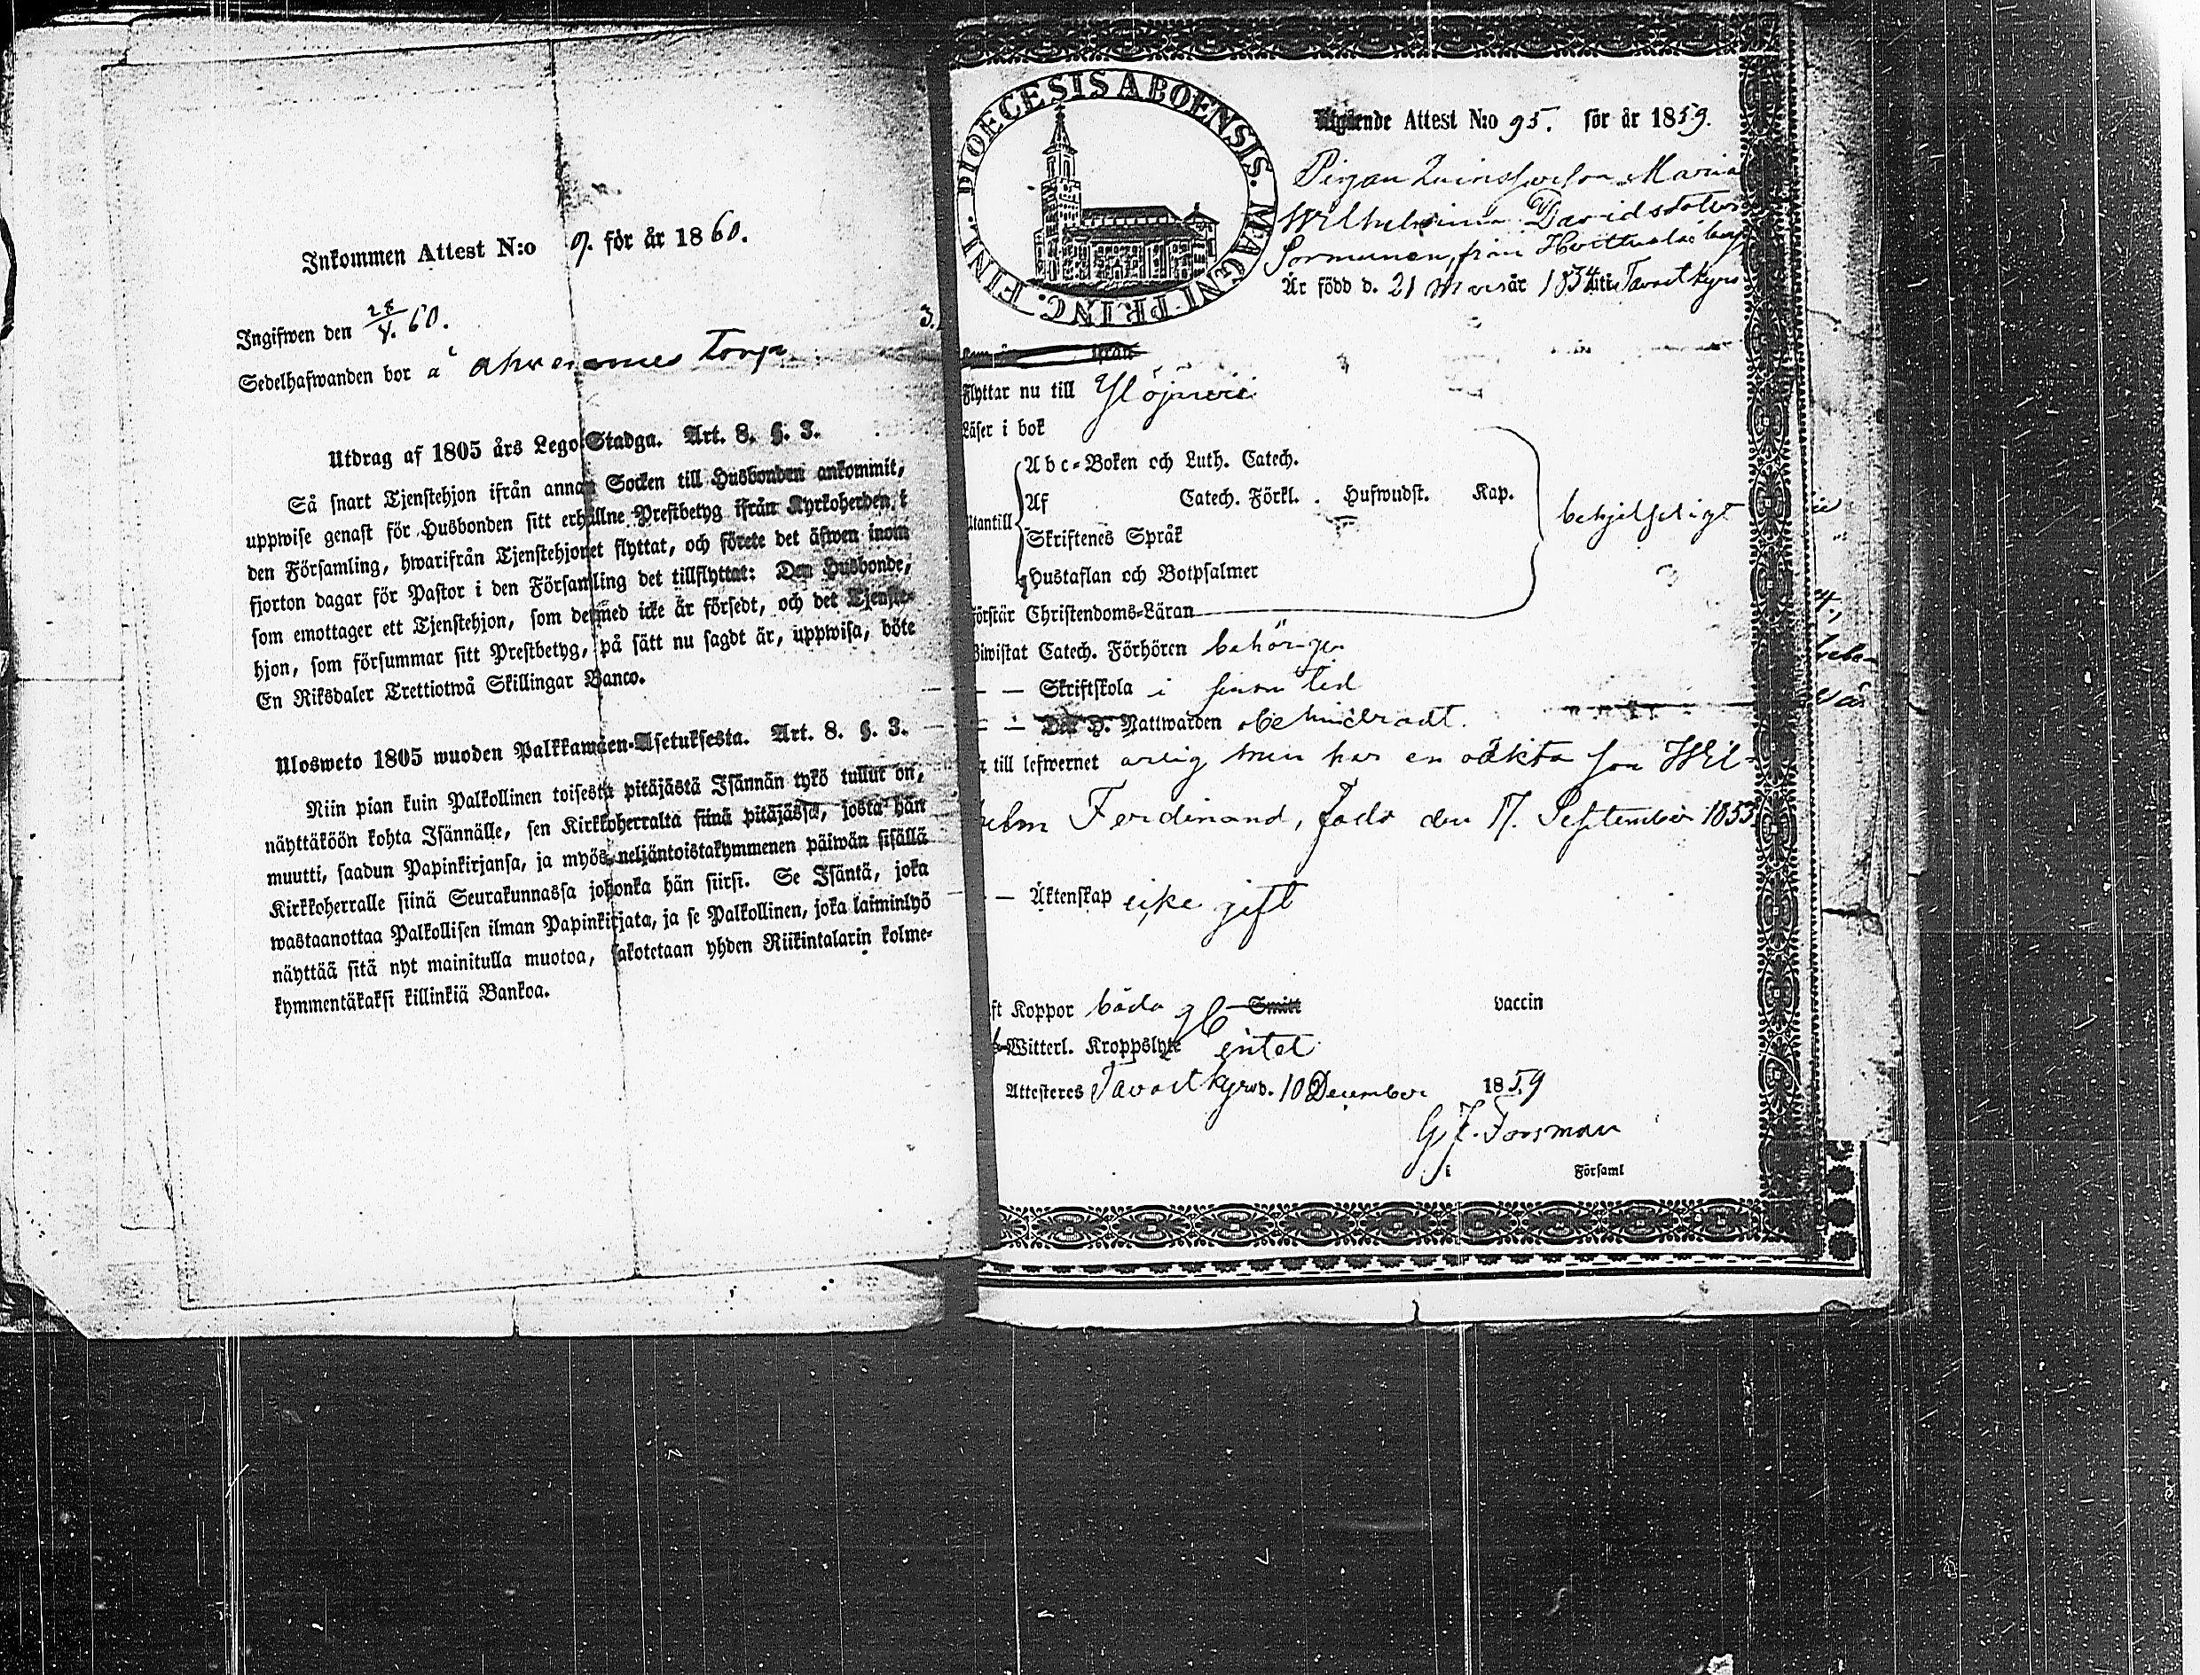 Inkommen Attest N:o 9. för år 1860.
Ingifwen den 28/4. 60.
Sedelhafwanden bor å Ahvenames torp
Utdrag af 1805 års Lego-Stadga. Art. 8. §. 3.
Så snart Tjenstehjon ifrån annan Socken till Husbonden ankommit,
uppwise genast för Husbonden sitt erhållne Prestbetyg ifrån Kyrkoherden i
den Församling, hwarifrån Tjenstehjonet flyttat, och förete det äfwen inom
fjorton dagar för Pastor i den Församling det tillflyttat: Den Husbonde,
som emottager ett Tjenstehjon, som dermed icke är försedt, och det Tjenste-
hjon, som försummar sitt Prestbetyg, på sätt nu sagdt är, uppwisa, böte
En Riksdaler Trettiotwå Skillingar Banco.
Ulosweto 1805 wuoden Palkkawäen-Asetuksesta. Art. 8. §. 3.
Niin pian kuin Palkollinen toisesta pitäjästä Isännän tykö tullut on,
näyttäköön kohta Isännälle, sen Kirkkoherralta siinä pitäjässä, josta hän
muutti, saadun Papinkirjansa, ja myös neljäntoistakymmenen päiwän sisällä
Kirkkoherralle siinä Seurakunnassa johonka hän siirsi. Se Isäntä, joka
wastaanottaa Palkollisen ilman Papinkirjata, ja se Palkollinen, joka laiminlyö
näyttää sitä nyt mainitulla muotoa, sakotetaan yhden Riikintalarin kolme-
kymmentäkaksi killinkiä Bankoa.
3.
DIOECESIS ABOENSIS. MAGNI PRINC. FINL.
Utgående Attest N:o 95. för år 1859.
Pigan Maria
Wilhelmina Davidsdotter
Sormunen, från
Är född d. 21 Mars år 1834 uti Tavastkyro
ifrån
Flyttar nu till Ylöjärvi
Läser i bok
Abc-Boken och Luth. Catech.
Utantill
Af Catech. Förkl. Hufwudst. Kap.
Skriftenes Språk
Hustaflan och Botpsalmer
behjelpligt
Förstår Christendoms-Läran
Biwistat Catech. Förhören behörigen
— — Skriftskola i sinom tid
— — Den H. Nattwarden obehindradt.
till lefwernet ärlig men har en oäkta son Wil-
helm Ferdinand, född den 17. September 1853
— Äktenskap icke gift
ft Koppor båda Smitt vaccin
Witterl. Kroppslyte intet
Attesteres Tavastkyro d. 10 December 1859
G. F. Forsman
i Församl